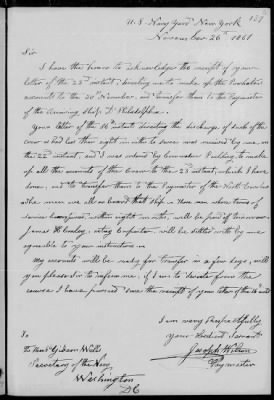 U.S. Navy Yard New York
November 26th 1861
Sir
I have the honor to acknowledge the receipt of your
letter of the 23d instant, directing me to make up the
accounts to the 30 November, and transfer them to the Paymaster
of the Receiving Ship, Philadelphia.
Your letter of the 16th instant directing the discharge of such of the
crew as had less than eight months to serve was received by me on
the 22nd instant, and I was ordered by Commodore to make up
all the accounts of the Crew to the 23 instant, which I have
done, and to transfer them to the Paymaster of the North Carolina
the men are all on board that Ship. Those men whose terms of
service have expired, within eight months, will be paid off tomorrow
James acting Carpenter will be settled with by me
agreeable to your instructions.
My accounts will be ready for transfer in a few days, will
you please Sir to inform me, if I am to deviate from the
course I have pursued since the receipt of your letter of the 16th inst.
I am very Respectfully
your Obedient Servant
Joseph Wilson
Paymaster
To
The Honl Gideon Wells
Secretary of the Navy
Washington
D.C.